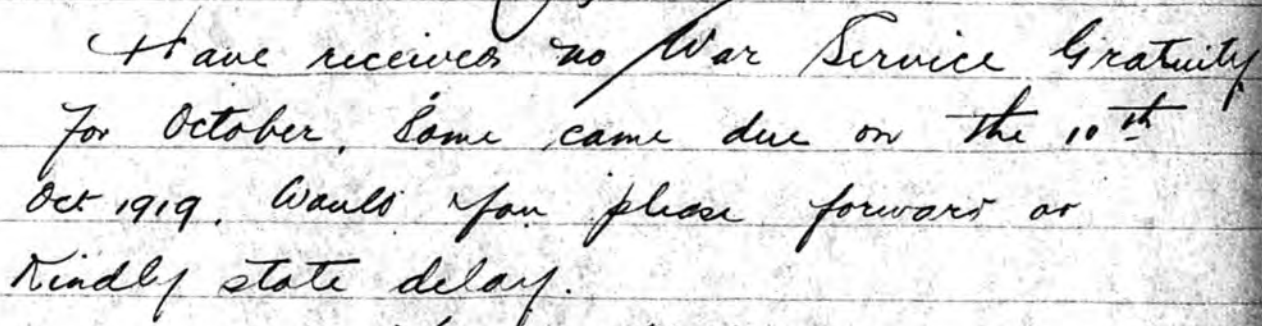 Have received no War Service Gratuity
for October. Same came due on the 10th
Oct 1919. Would you please forward or
Kindly state delay.